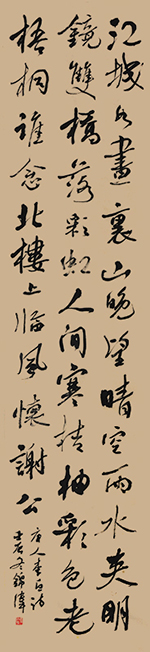 江城如畫裏山晚望晴空兩水夾明
鏡雙橋落彩虹人間寒桔柚彩色老
梧桐誰念北樓上臨風懷謝公
唐人李白詩
壬辰冬錦偉